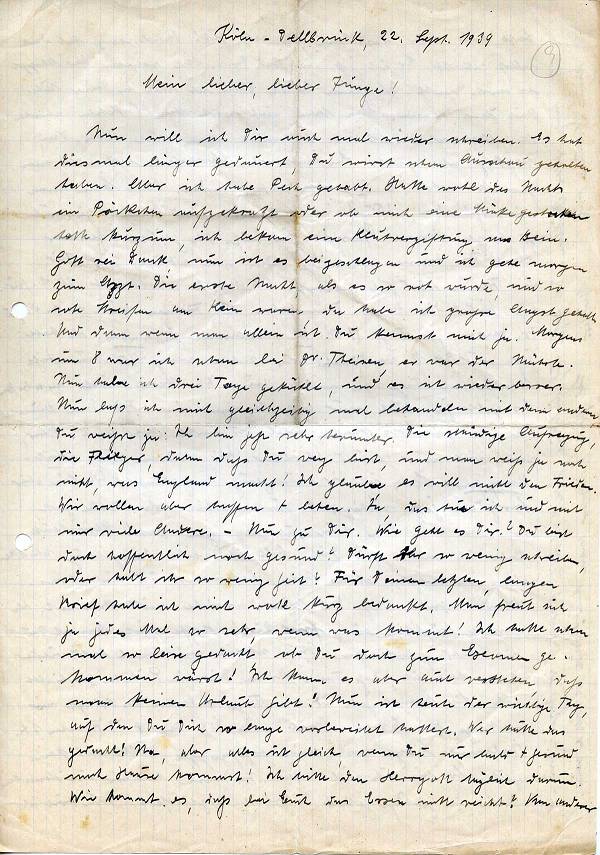 Köln-Dellbrück, 22. Sept. 1939
Mein lieber, lieber Junge!
Nun will ich Dir auch mal wieder schreiben. Es hat
diesmal länger gedauert, Du wirst schon Ausschau gehalten
haben. Aber ich habe Pech gehabt. Hatte wohl des Nachts
ein Pöckchen aufgekratzt oder ob mich eine Mücke gestochen
hatte kurzum, ich bekam eine Blutvergiftung am Bein.
Gott sei Dank nun ist es beigeschlagen und ich gehe morgen
zum Arzt. Die erste Nacht, als es so rot wurde, und so
rote Streifen am Bein waren, da habe ich große Angst gehabt.
Und dann wenn man allein ist. Du kennst mich ja. Morgens
um 8 war ich schon bei Dr. Theisen, er war der Nächste.
Nun habe ich drei Tage gekühlt, und es ist wieder besser.
Nun lass ich mich gleichzeitig mal behandeln mit dem andern
Du weißt ja. Ich bin jetzt sehr herunter. Die ständige Aufregung,
die Flieger, dann daß Du weg bist, und man weiß ja noch
nicht, was England macht! Ich glaube es will nicht den Frieden.
Wir wollen aber hoffen + beten. Ja, das tue ich und mit
mir viele Andere. – Nun zu Dir. Wie geht es Dir? Du bist
doch hoffentlich noch gesund? Dürft Ihr so wenig schreiben,
oder habt ihr so wenig Zeit? Für Deinen letzten, langen
Brief habe ich mich wohl kurz bedankt. Man freut sich
ja jedes Mal so sehr, wenn was kommt! Ich hatte schon
mal so leise gedacht, ob Du doch zum Examen ge-
kommen wärst! Ich kann es aber auch verstehen, daß
man keinen Urlaub gibt! Nun ist heute der wichtige Tag,
auf den Du Dich so lange vorbereitet hattest. Wer hätte das
gedacht! Na, aber alles ist gleich, wenn Du nur bald + gesund
nach Hause kommst! Ich bitte den Herrgott täglich darum.
Wie kommt es, daß bei Euch das Essen nicht reicht? Von anderer